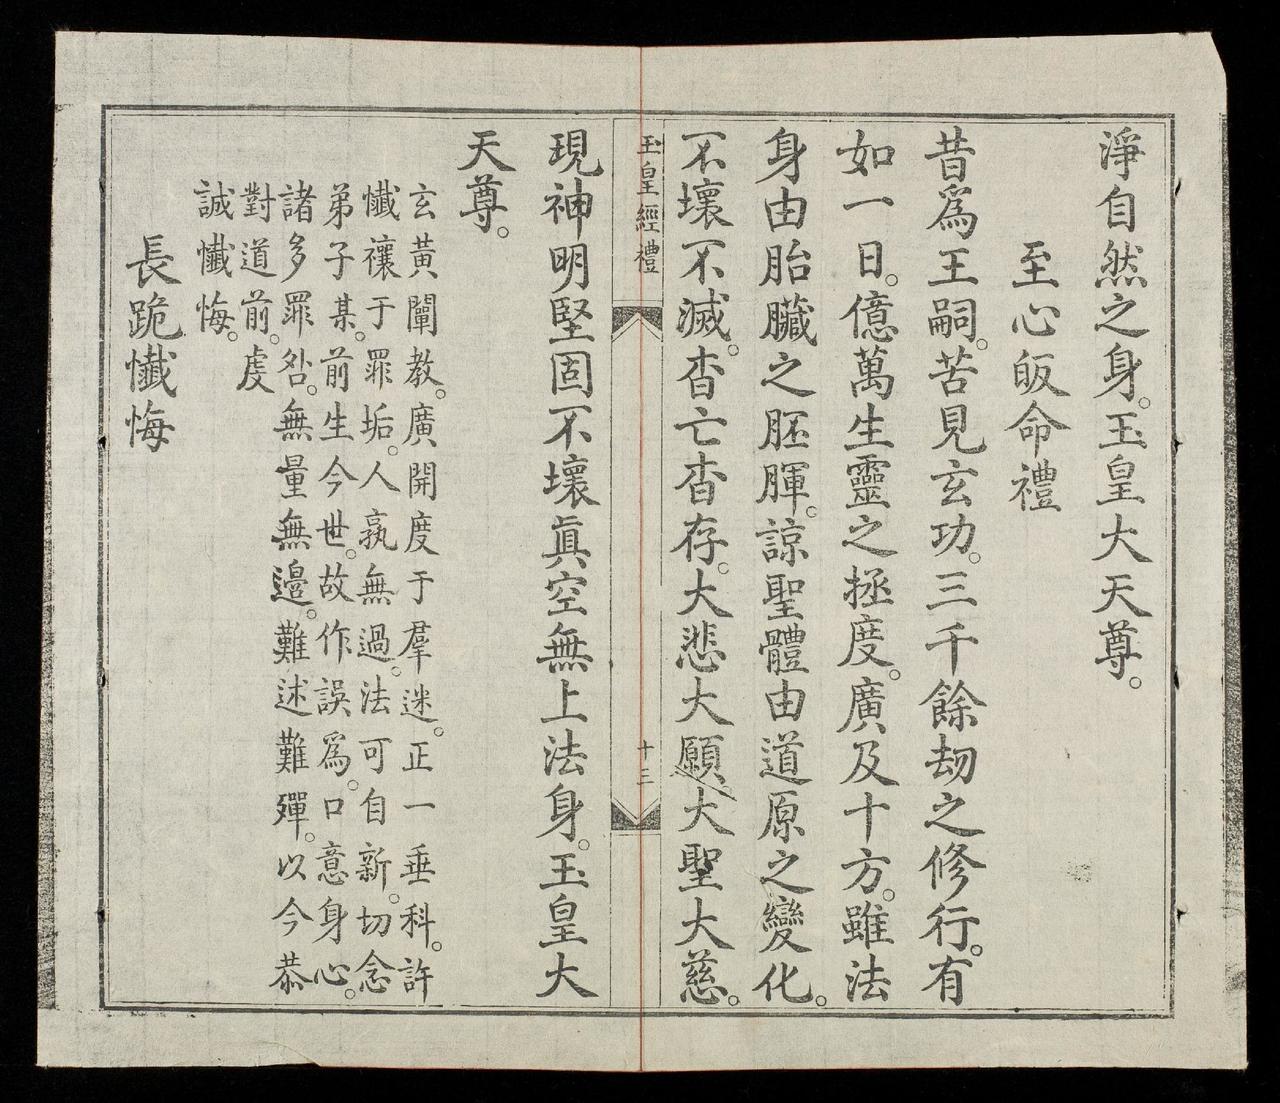 淨自然之身。玉皇大天尊。
至心皈命禮
昔為王嗣。苦見玄功。三千餘刼之修行。有
如一日。億萬生靈之拯度。廣及十方。雖法
身由胎臟之胚腪。諒聖體由道原之變化。
不壞不滅。杳亡杳存。大悲大願。大聖大慈。
玉皇經禮
十三
現神明堅固不壞眞空無上法身。玉皇大
天尊。
玄黃闡教。廣開度于羣迷。正一垂科。許
懺禳于罪垢。人孰無過。法可自新。切念
弟子某。前生今世。故作誤為。口意身心。
諸多罪咎。無量無邉。難述難殫。以今恭
對道前。虔
誠懺悔。
長跪懺悔